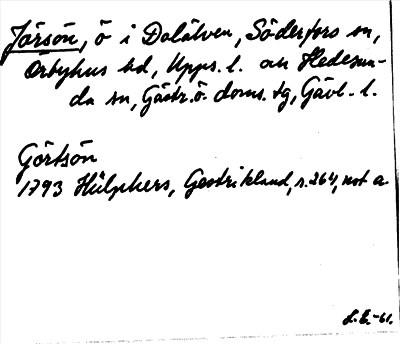 Jörsön, ö i Dalälven, Söderfors sn,
Örbyhus hd, Upps. l. och Hedesun-
da sn, Gästr. ö. doms. tg, Gävl. l.
Görtsön
1793 Hülphers, Gestrikland, s. 264, not a.
L.E.-61.